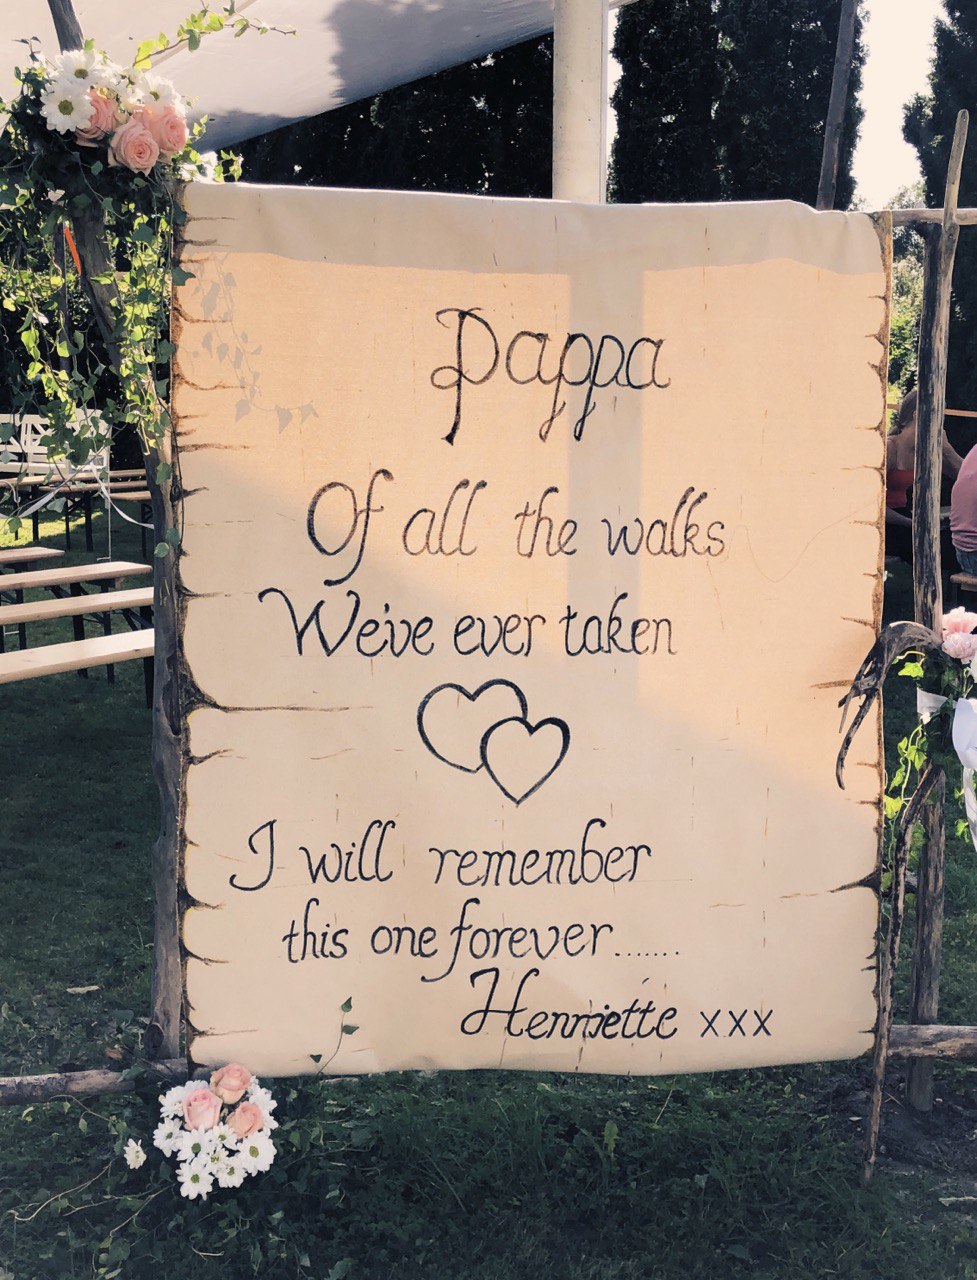 Pappa
Of all the walks
We've ever taken
I will remember
this one forever.......
Henriette xxx